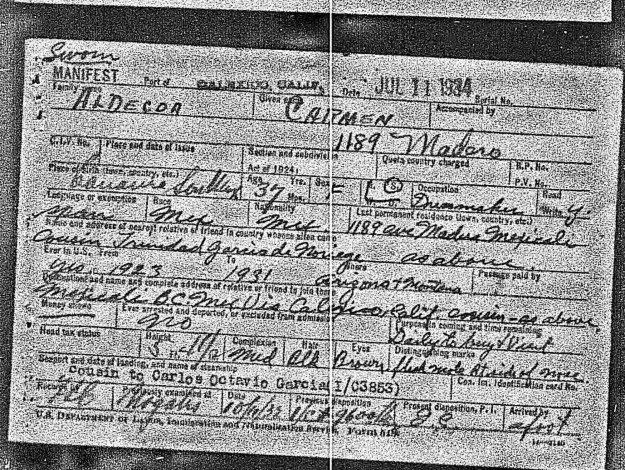 Sworn
MANIFEST Port of CALEXICO, CALIF. Date JUL 11 1934 Serial No.
Family ALDECOA Given name CARMEN Accompanied by
1189 Madero
C.I.V. No. Place and date of issue Section and subdivision Act of 1924: Quota country charged R.P. No. P.V. No.
Place of birth (town, country, etc.) Age Yrs. Mos. Sex Occupation Read Write
37 F S Dressmaker y
Language or exemption Race Nationality Last permanent residence (town, country, etc.)
Mex Mex 1189 ave Madero Mexicali
Name and address of nearest relative or friend in country whence alien came
Cousin Trinidad Garcia de Noriega as above
Ever in U.S. From To Where Passage paid by
1923 1931 Arizona & Montana
Destination and name and complete address of relative or friend to join there
Mexicali B.C. Mex Via Calexico, Calif cousin-as above
Money shown Ever arrested and deported, or excluded from admission Purpose in coming and time remaining
no Daily to buy & visit
Head tax status Height Complexion Hair Eyes Distinguishing marks
Med Blk Brown flesh mole Rt side of nose
Seaport and date of landing, and name of steamship Con. Im. Identification card No.
Cousin to Carlos Octavio Garcia(I/C3853)
Record by Previously examined at Date Previous disposition Present disposition, P.I. Arrived by
Nogales afoot
U.S. DEPARTMENT OF LABOR, Immigration and Naturalization Service, Form 548